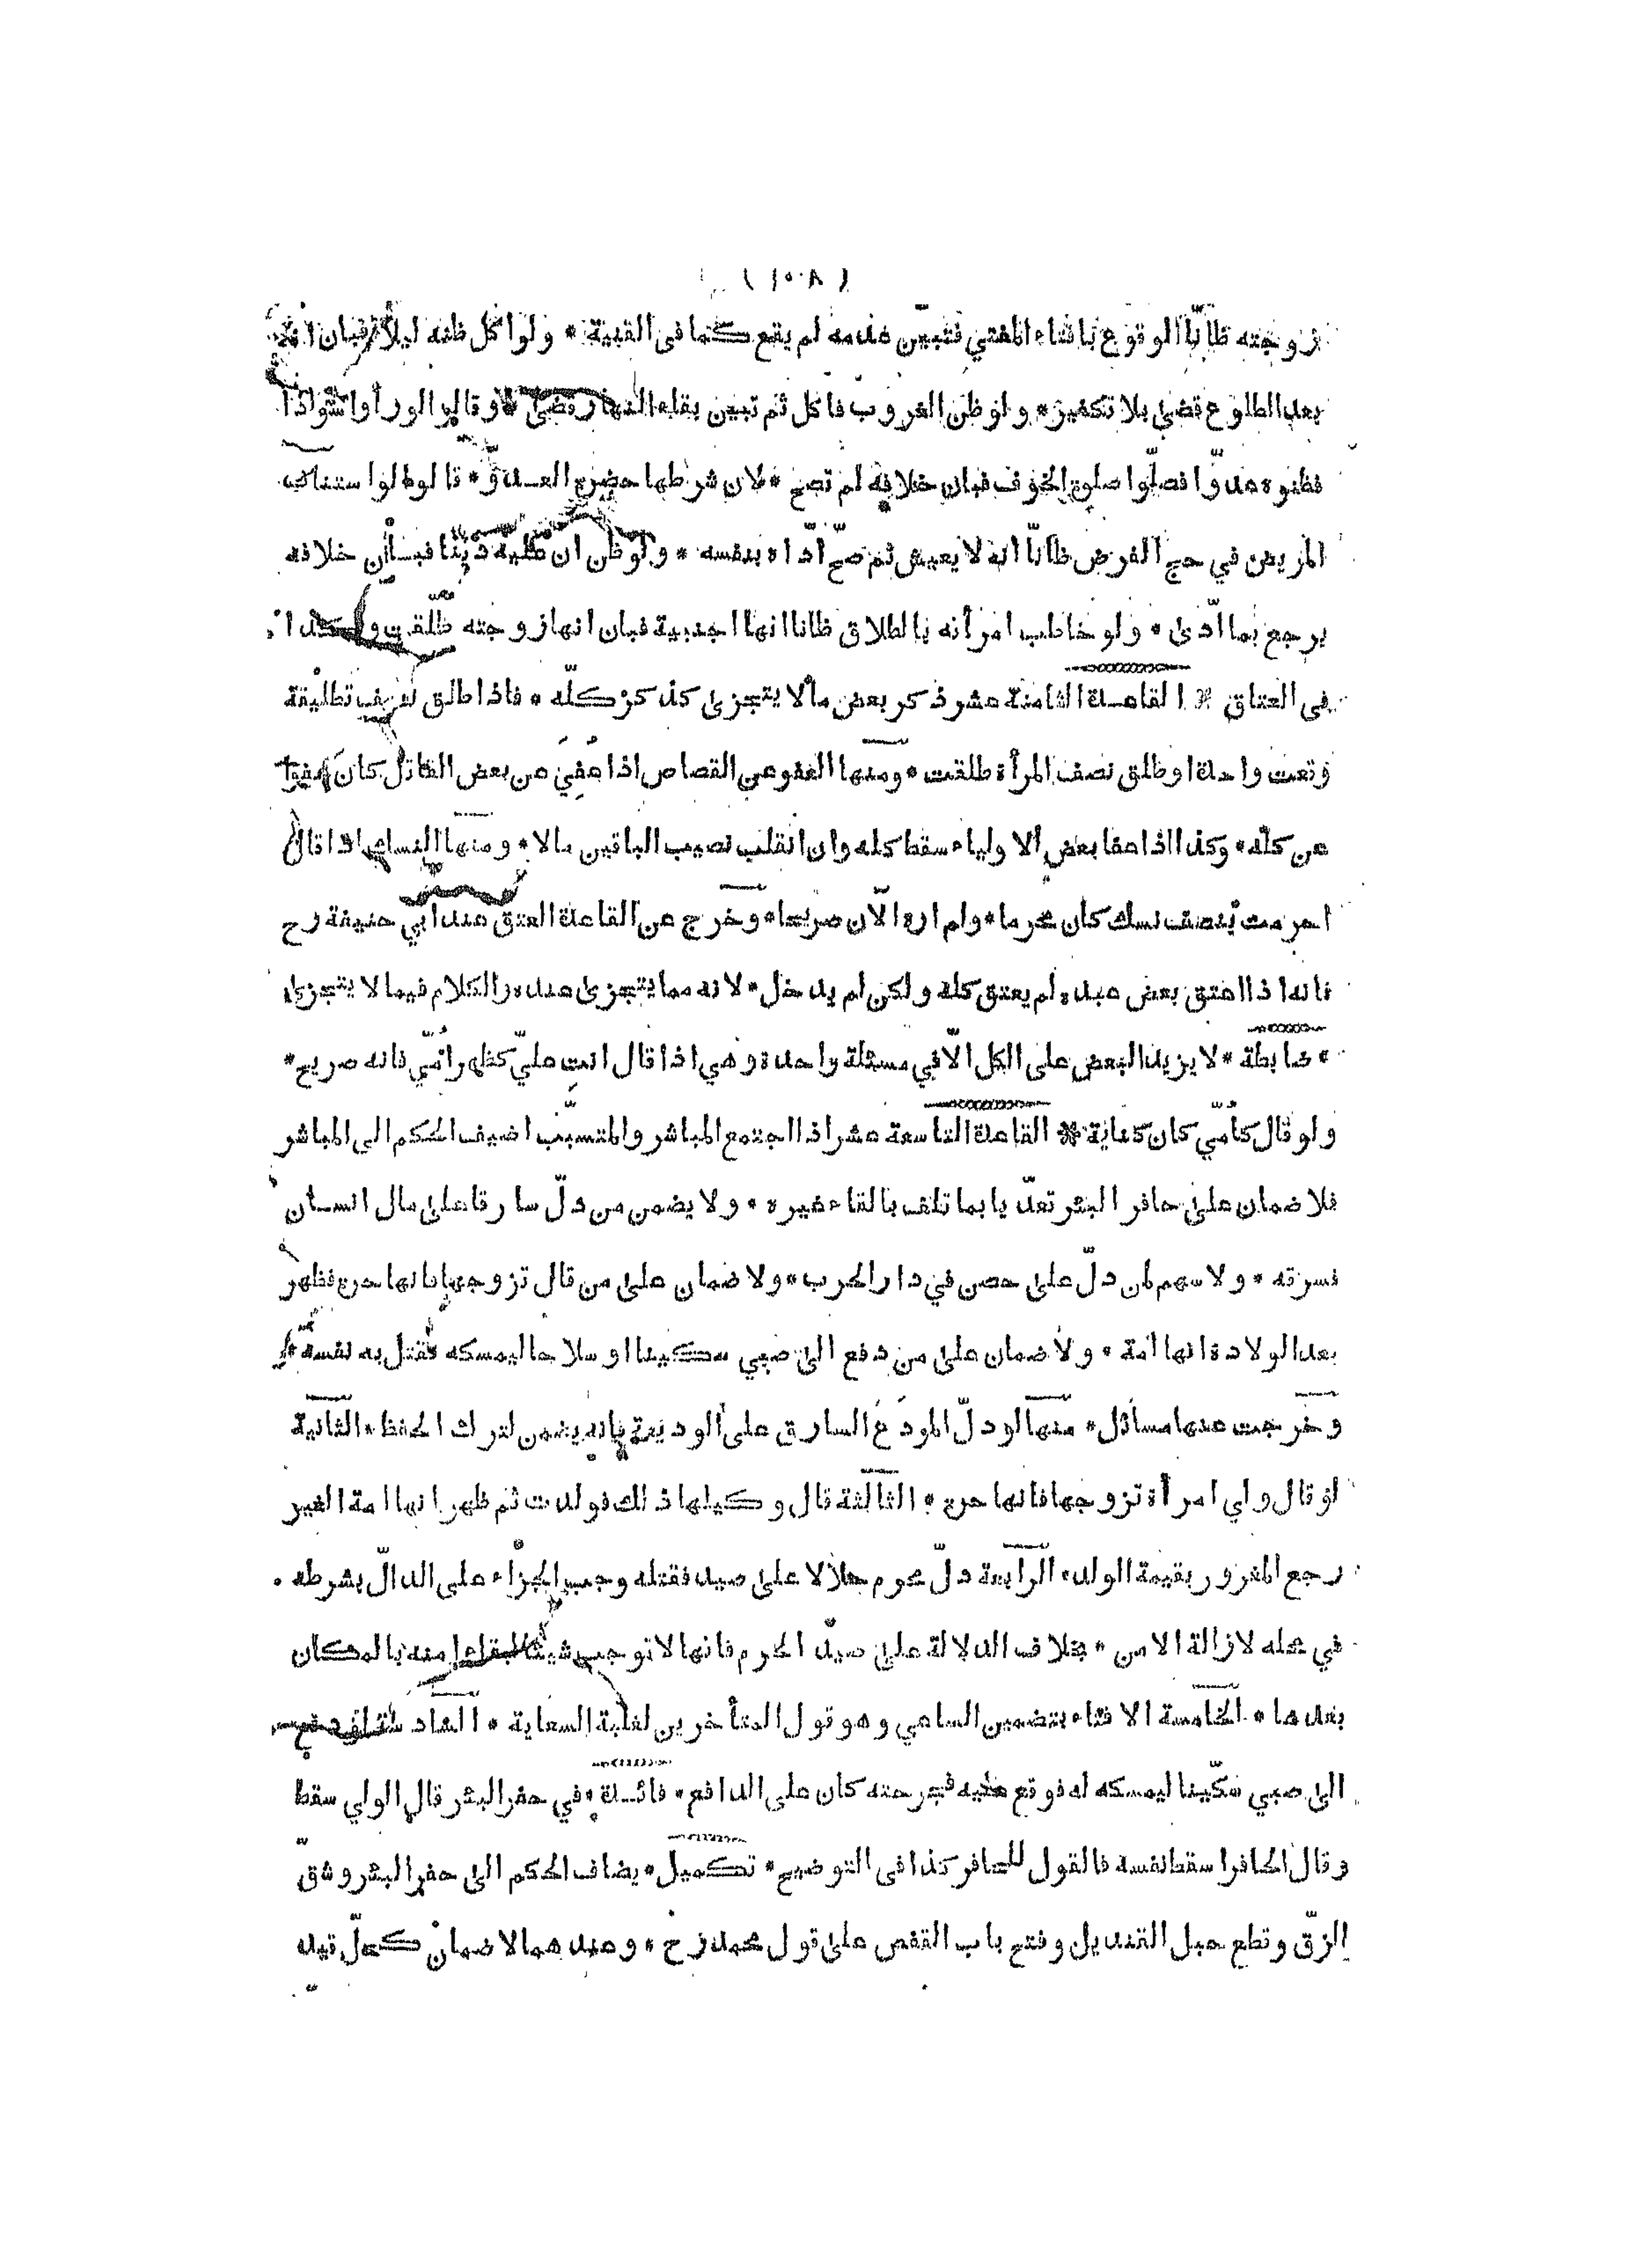 ( ١٠٨ )
زوجته ظانًّا الوقوع بافتاء المفتي فتبيّن عدمه لم يقع كما فى القنية * ولو اكل ظنه ليلا فبان انه
بعد الطلوع قضى بلا تكفير * ولو ظن الغروب فاكل ثم تبين بقاء النهار قضى * وقالوا لو رأوا سوادا
فظنوه عدوّا فصلّوا صلوة الخوف فبان خلافه لم تصح * لان شرطها حضرة العدوّ * قالوا لو استناب
المريض في حج الفرض ظانّا انه لا يعيش ثم صحّ ادّاه بنفسه * ولو ظن ان عليه دينا فبان خلافه
يرجع بما ادّى * ولو خاطب امرأته بالطلاق ظانا انها اجنبية فبان انها زوجته طلّقت وكذا
فى العتاق * القاعدة الثامنة عشر ذكر بعض ما لا يتجزى كذكر كلّه * فاذا طلق نصف تطليقة
وقعت واحدة او طلق نصف المرأة طلقت * ومنها العفو عن القصاص اذا عُفِيَ عن بعض القاتل كان عفوا
عن كلّه * وكذا اذا عفا بعض الاولياء سقط كله وان انقلب نصيب الباقين مالا * ومنها النسك اذا قال
احرمت بنصف نسك كان محرما * ولم اره الآن صريحا * وخرج عن القاعدة العتق عند ابي حنيفة رح
فانه اذا اعتق بعض عبده لم يعتق كله ولكن لم يدخل * لانه مما يتجزى عنده والكلام فيما لا يتجزى
* ضابطة * لا يزيد البعض على الكل الّا في مسئلة واحدة وهي اذا قال انتِ عليّ كظهر امّي فانه صريح *
ولو قال كاُمّي كان كناية * القاعدة التاسعة عشر اذا اجتمع المباشر والمتسبّب اضيف الحكم الى المباشر
فلا ضمان على حافر البئر تعدّيا بما تلف بالقاء غيره * ولا يضمن من دلّ سارقا على مال انسان
فسرقه * ولا سهم لمن دلّ على حصن في دار الحرب * ولا ضمان على من قال تزوجها فانها حرة فظهر
بعد الولادة انها امة * ولا ضمان على من دفع الى صبي سكينا او سلاحا ليمسكه فقتل به نفسه *
وخرجت عنها مسائل * منها لو دلّ المودَع السارق على الوديعة فانه يضمن لترك الحفظ * الثانية
لو قال ولي امرأة تزوجها فانها حرة * الثالثة قال وكيلها ذلك فولدت ثم ظهر انها امة الغير
رجع المغرور بقيمة الولد * الرابعة دلّ محرم حلالا على صيد فقتله وجب الجزاء على الدالّ بشرطه
في محله لازالة الامن * بخلاف الدلالة على صيد الحرم فانها لا توجب شيئا لبقاء امنه بالمكان
بعدها * الخامسة الافتاء بتضمين الساعي وهو قول المتأخرين لغلبة السعاية * السادسة لو دفع
الى صبي سكّينا ليمسكه له فوقع عليه فجرحته كان على الدافع * فائدة * في حفر البئر قال الولي سقط
وقال الحافر اسقط نفسه فالقول للحافر كذا فى التوضيح * تكميل * يضاف الحكم الى حفر البئر وشقّ
الزقّ وقطع حبل القنديل وفتح باب القفص على قول محمد رح * وعندهما لا ضمان كحلّ قيد